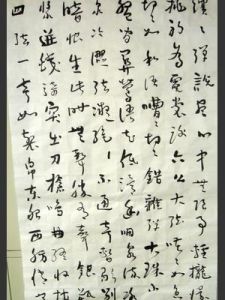 續續彈說盡心中無限事輕攏
挑初為霓裳後六幺大弦嘈嘈如急
切切如私語嘈嘈切切錯雜彈大珠小
盤間關鶯語花底滑幽咽泉流
泉冷澀弦凝絕凝絕不通聲暫歇別
暗恨生此時無聲勝有聲銀瓶
漿迸鐵騎突出刀槍鳴曲終收撥
四弦一聲如裂帛東船西舫悄無